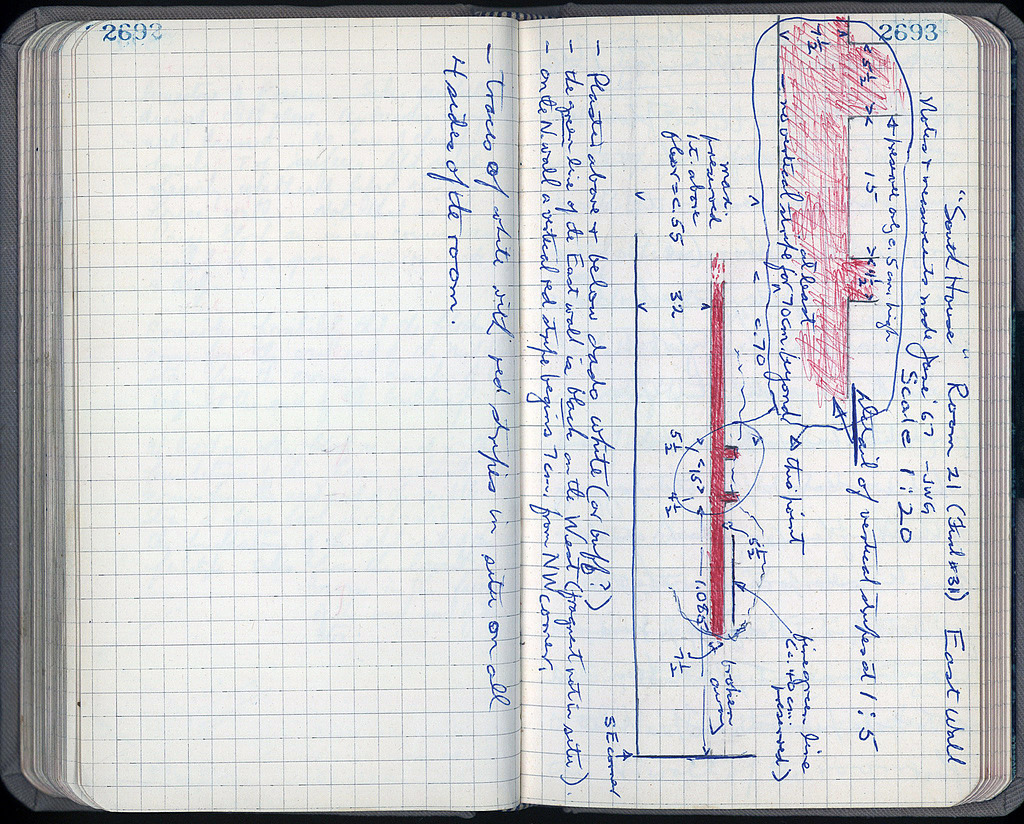 2693
2693
"South House" Room 21 (Find #31) East Wall
Notes + measurements made June '67 - JWG
Scale 1:20
Detail of vertical stripes at 1:5
preserved only c. 5 cm. high
5½
15
4½
7½
- no vertical stripe for at least 70 cm. beyond this point
fine green line
(c. 40 cm.
preserved)
c. 70
5½
max.
preserved
ht. above
floor = c. 55
32
5½
15
4½
1.085
7½
broken
away
SE corner
- Plaster above + below dado white (or buff?)
- the green line of the East wall is black on the West (fragment not in situ).
- on the N. wall a vertical red stripe begins 7 cm. from NW corner.
- Traces of white with red stripes in situ on all
4 sides of the room.